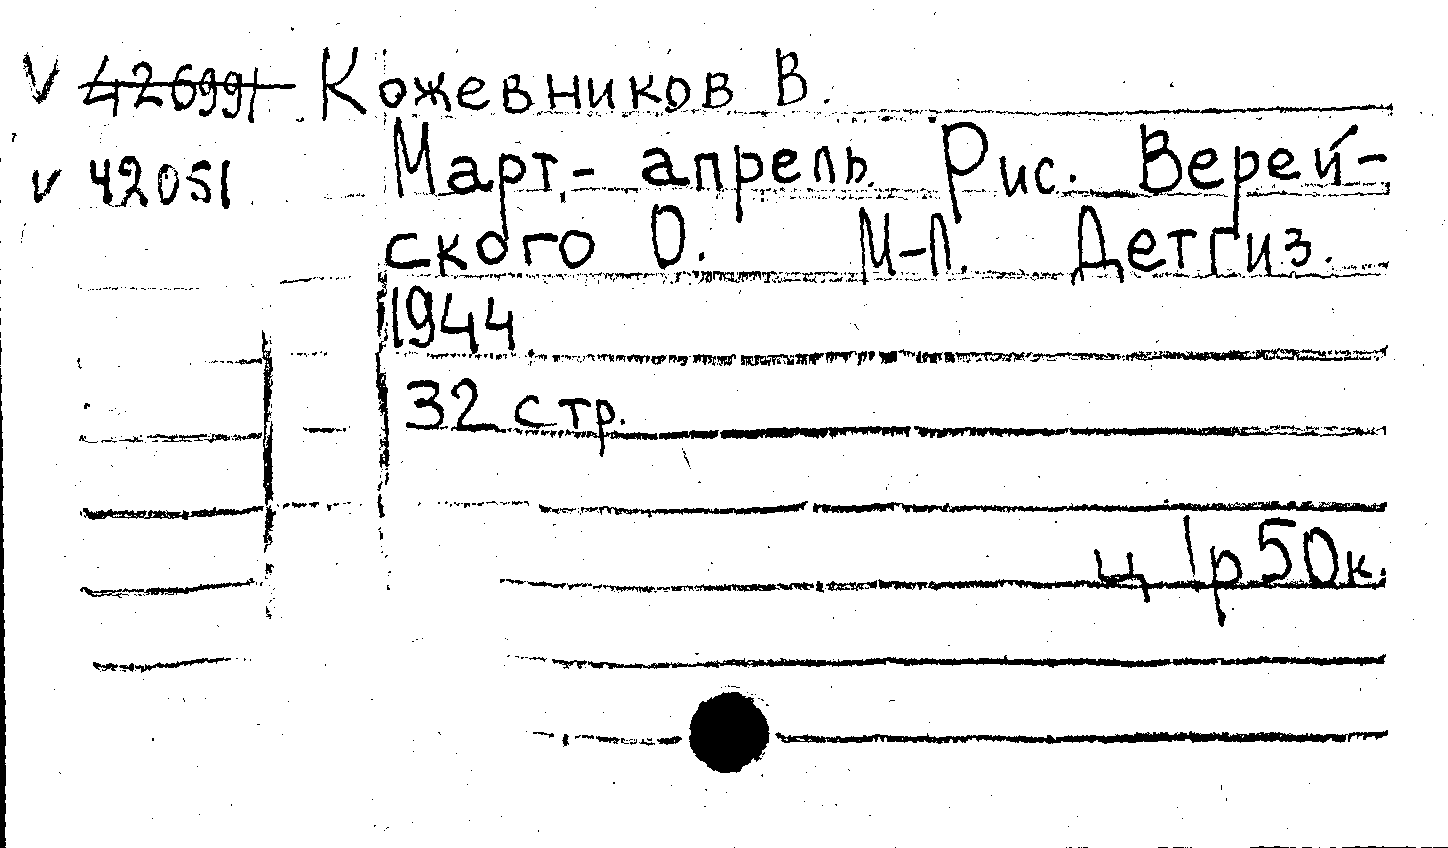 V 42699/ Кожевников В.
v 42051 Март.- апрель. Рис. Верей-
ского О. М-Л. Детгиз.
1944
32 стр.
ц 1р50к.